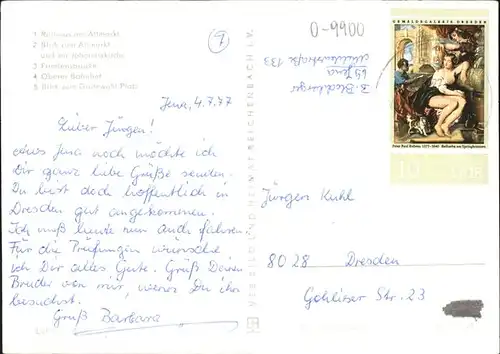 1 Rathaus am Altmarkt
2 Blick zum Altmarkt
und zur Johanniskirche
3
4 Oberer Bahnhof
5 Blick zum Platz
7
0-9900
B.
69 Jena
133
VEB BILD UND HEIMAT REICHENBACH I. V.
GEMÄLDEGALERIE DRESDEN
Peter Paul Rubens 1577-1640 Bathseba am Springbrunnen
10 DDR
Jena, 4.7.77
Lieber Jürgen!
Aus Jena noch möchte ich
Dir ganz liebe Grüße senden.
Du bist doch hoffentlich in
Dresden gut angekommen.
Ich muß heute nun auch fahren.
Für die Prüfungen wünsche
ich Dir alles Gute. Grüß Deinen
Bruder von mir, wenn Du ihn
besuchst.
Gruß Barbara
Jürgen Kuhl
8028 Dresden
Gohliser Str. 23